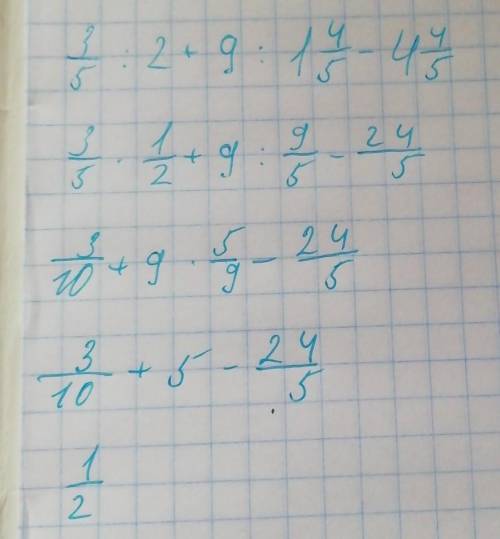 3/5 : 2 + 9 : 1 4/5 - 4 4/5
3/5 · 1/2 + 9 : 9/5 - 24/5
3/10 + 9 · 5/9 - 24/5
3/10 + 5 - 24/5
1/2